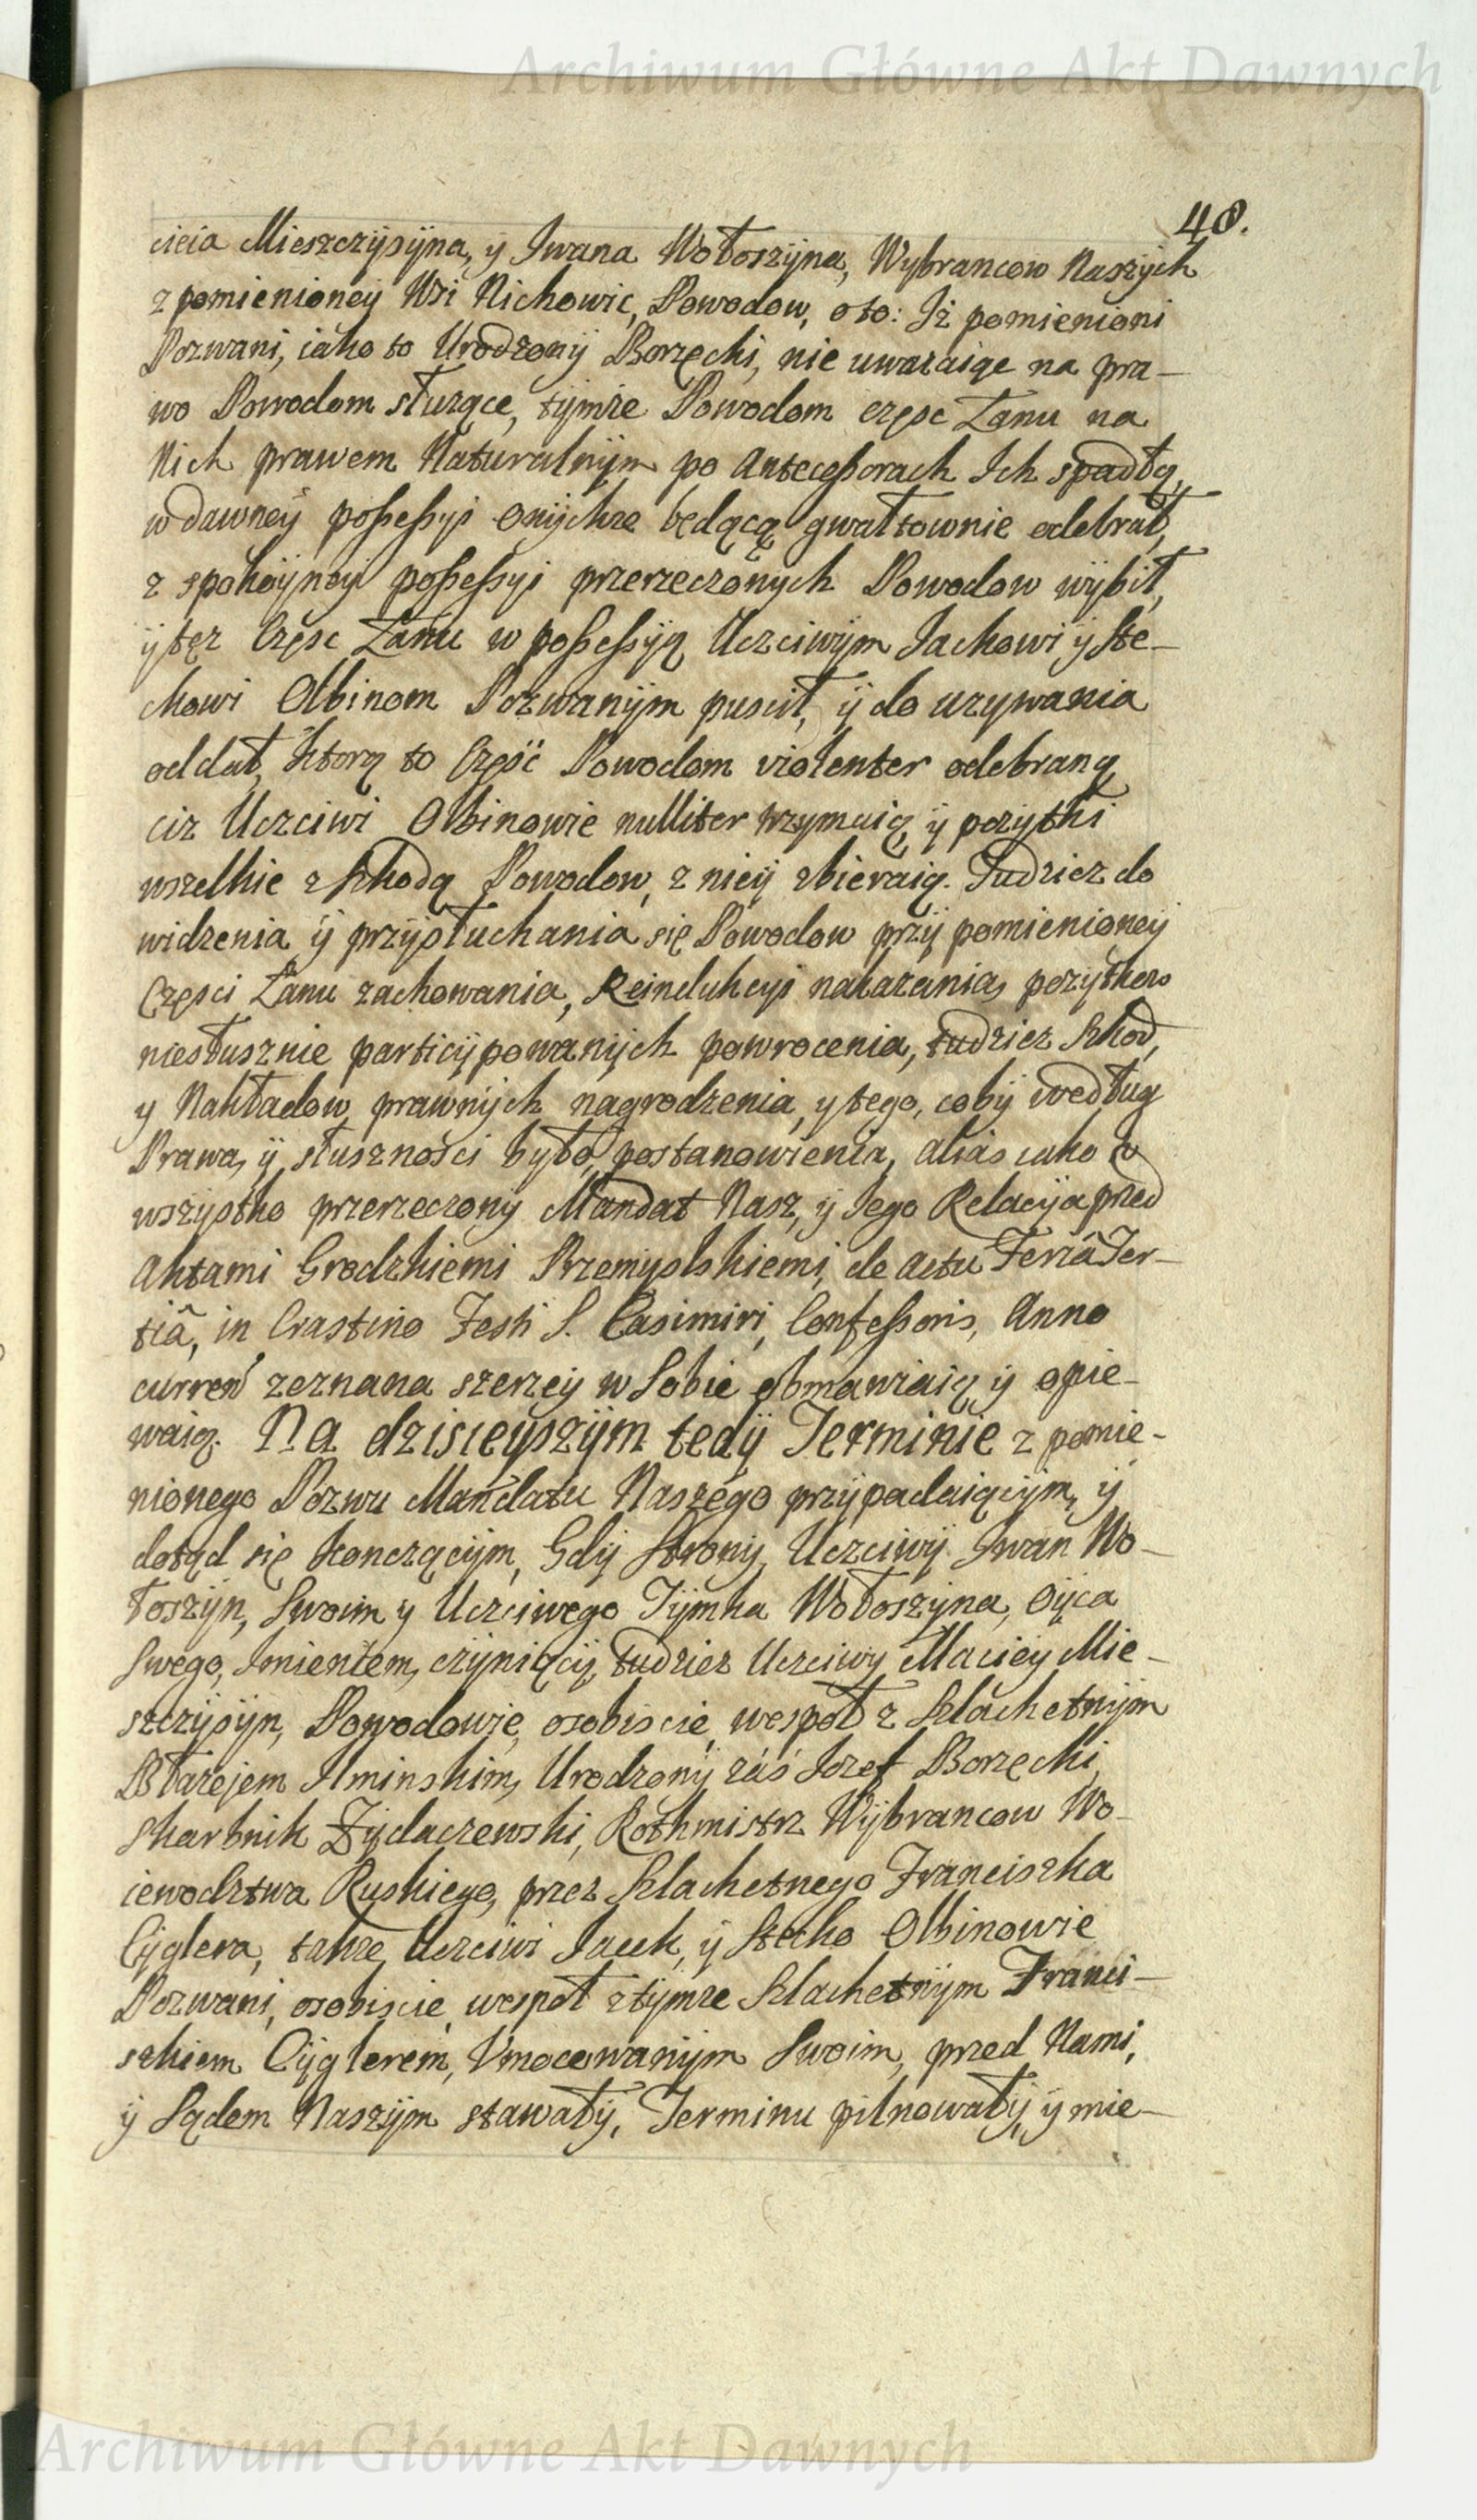 Archiwum Główne Akt Dawnych
48.
cieia Mieszczysyna, y Iwana Wołoszyna, Wybrancow Naszych
z pomienioney Wsi Nichowic, Powodow, oto: Iż pomienioni
Pozwani, iako to Urodzony Borzęcki, nie uważaiąc na pra-
wo Powodom służące, tymże Powodom częsc Łanu na
Nich prawem Naturalnym po Antecessorach Ich spadłą,
w dawney possessyi onychże będącą gwałtownie odebrał,
z spokoyney possessyi przerzeczonych Powodow wybił,
y tęż Częsc Łanu w possessyą Uczciwym Jackowi y Ste-
ckowi Olbinom Pozwanym puscił, y do uzywania
oddał, ktorą to Część Powodom violenter odebraną
ciż Uczciwi Olbinowie nulliter trzymaią, y pozytki
wszelkie z szkodą Powodow, z niey zbieraią. Tudziez do
widzenia y przysłuchania się Powodow przy pomienioney
Częsci Łanu zachowania, Reindukcyi nakazania, pozytkow
niesłusznie participowanych powrocenia, tudziez szkod,
y Nakładow prawnych nagrodzenia, y tego, coby według
Prawa, y słuszności było, postanowienia, alias iako o
wszystko przerzeczony Mandat Nasz, y Jego Relacya przed
Aktami Grodzkiemi Przemyslskiemi, de Actu Feriâ Ter-
tiâ, in Crastino Festi S. Casimiri, Confessoris, Anno
curren zeznana szerzey w Sobie obmawiaią y opie-
waią. Na dzisieyszym tedy Terminie z pomie-
nionego Pozwu Mandatu Naszego przypadaiącym, y
dotąd się konczącym, Gdy Strony, Uczciwy Iwan Wo-
łoszyn, Swoim y Uczciwego Tymka Wołoszyna, Oyca
Swego, Imieniem, czyniący, tudziez Uczciwy Maciey Mie-
szczysyn, Powodowie, osobiscie, wespoł z Szlachetnym
Błażejem Ilminskim, Urodzony zaś Jozef Borzęcki,
Skarbnik Żydaczewski, Rothmistrz Wybrancow Wo-
iewodztwa Ruskiego, przez Szlachetnego Franciszka
Cyglera, także Uczciwi Jacek, y Stecko Olbinowie
Pozwani, osobiscie, wespoł z tymże Szlachetnym Franci-
szkiem Cyglerem, Umocowanym Swoim, przed Nami,
y Sądem Naszym stawały, Terminu pilnowały, y mie-
Archiwum Główne Akt Dawnych